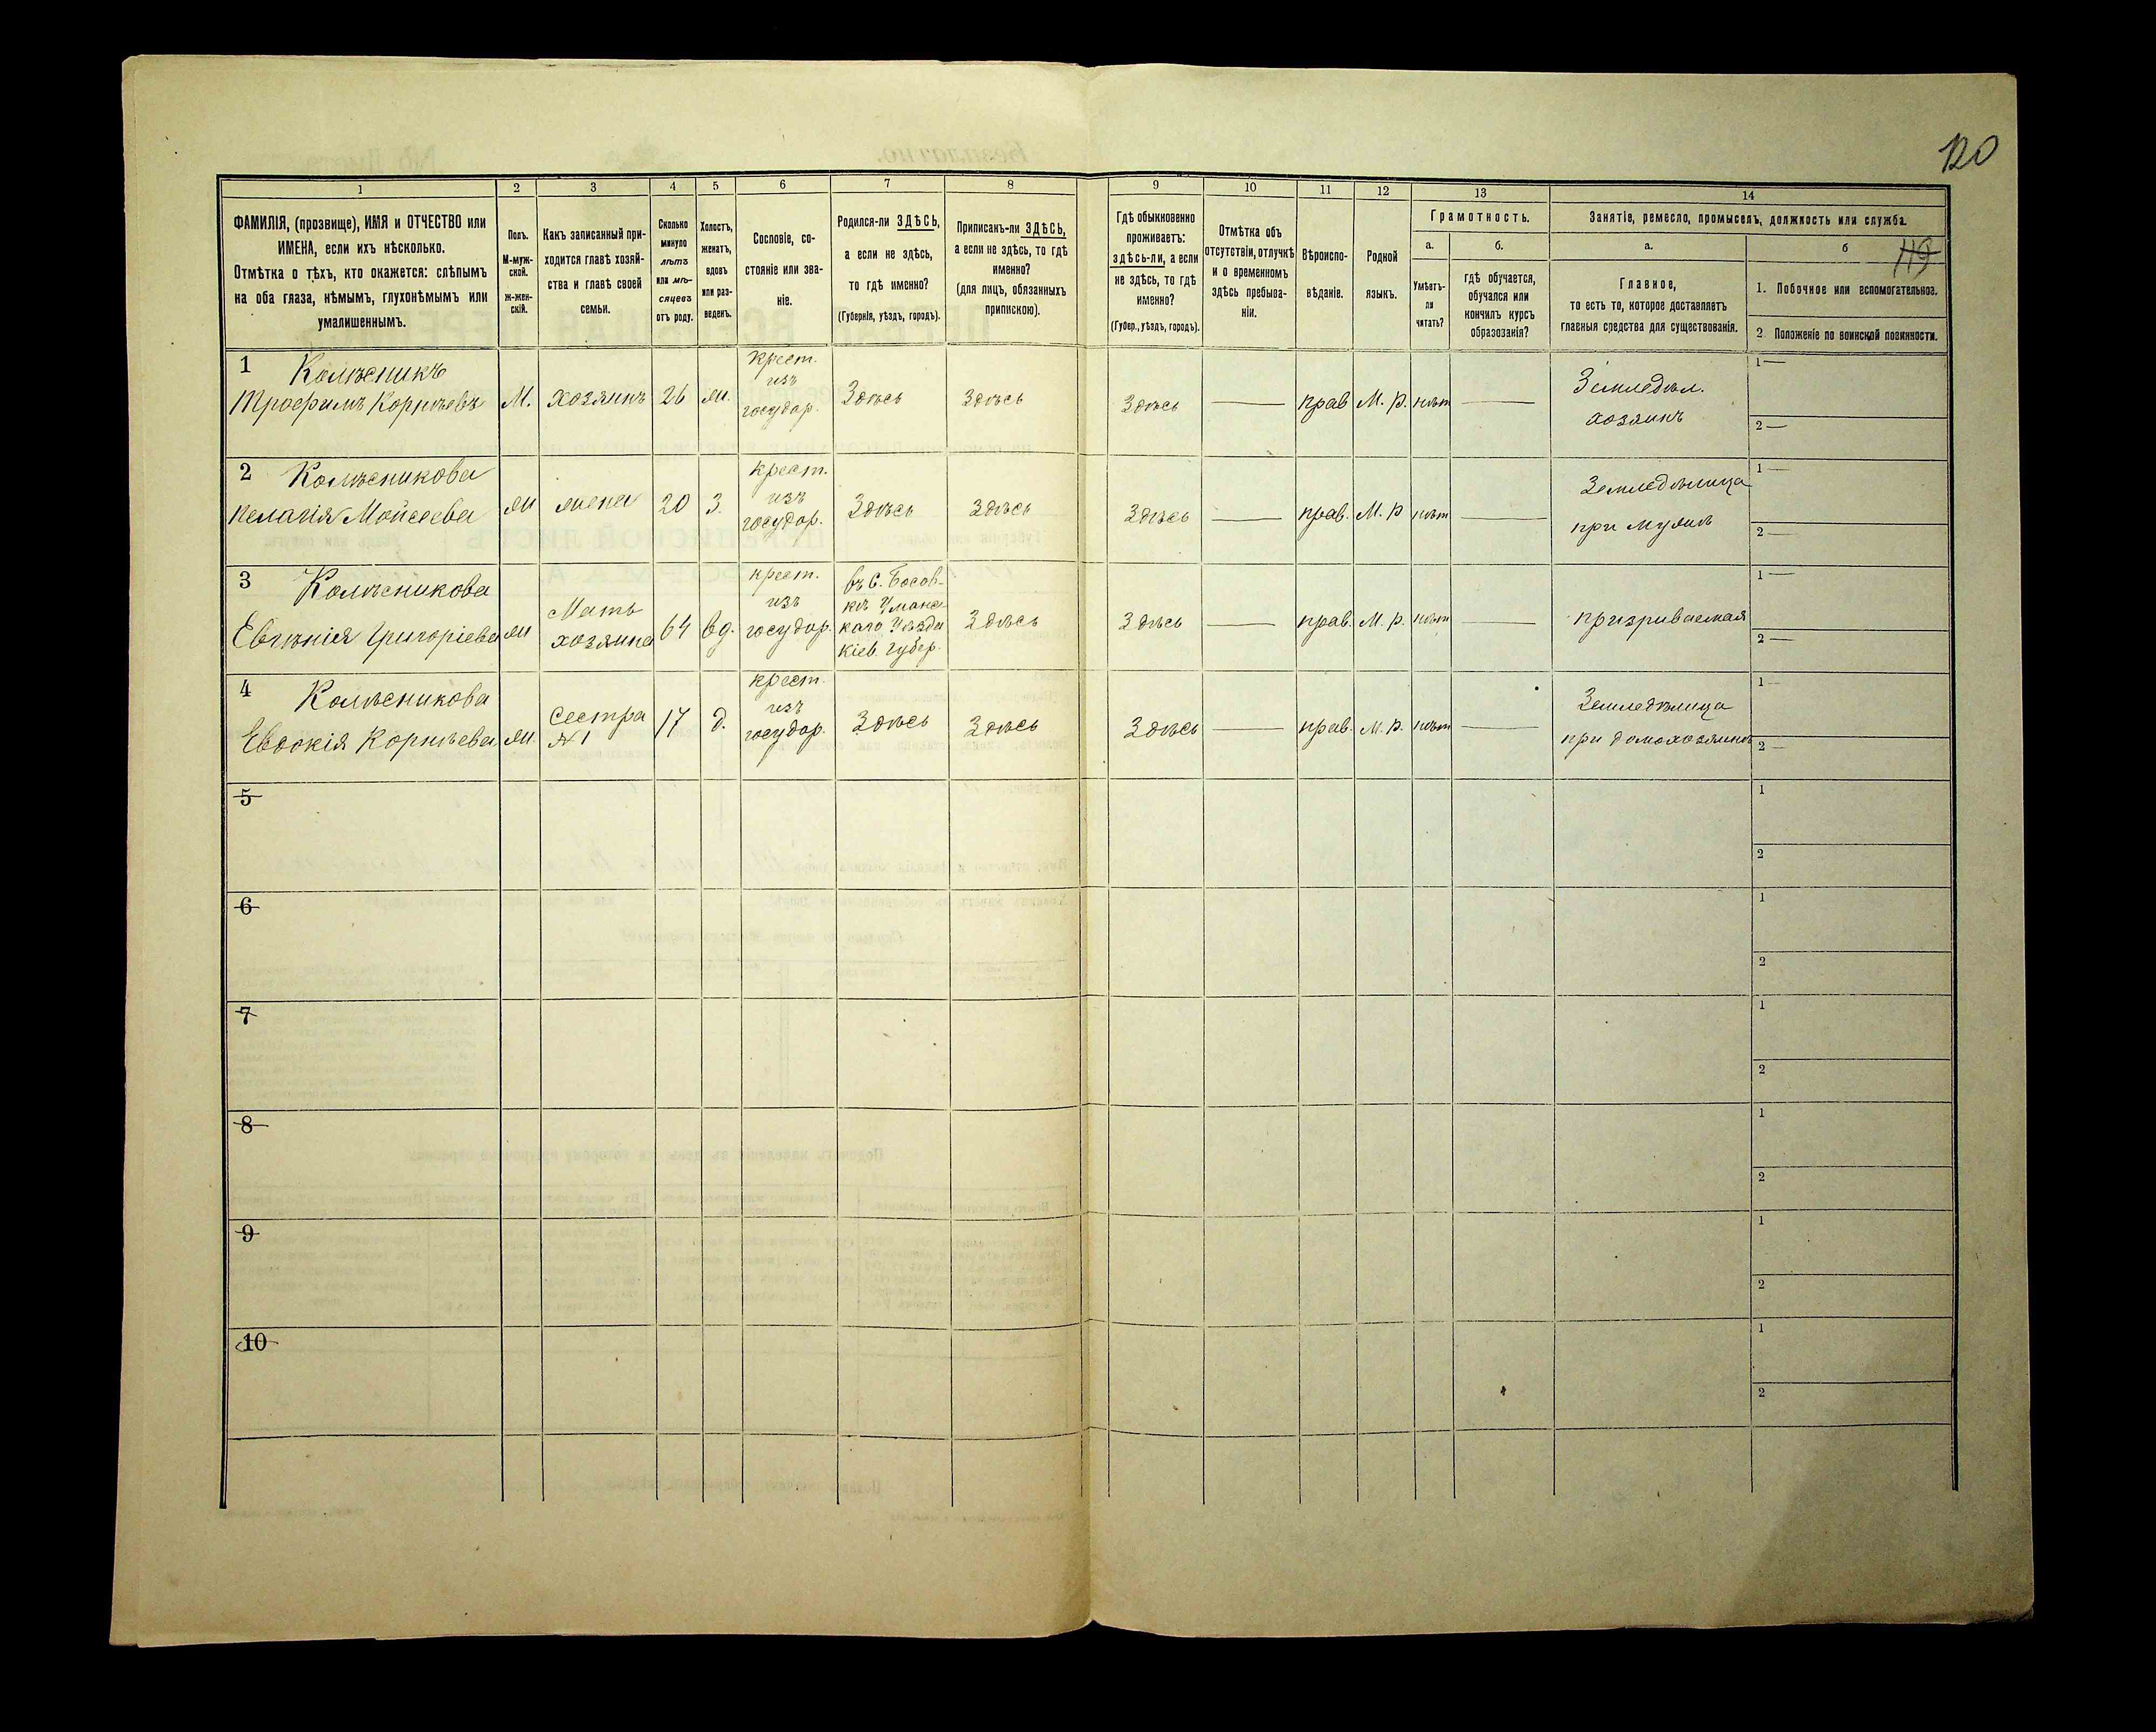 120
1 2 3 4 5 6 7 8 9 10 11 12 13 14
ФАМИЛІЯ, (прозвище), ИМЯ и ОТЧЕСТВО или
ИМЕНА, если ихъ нѣсколько.
Отмѣтка о тѣхъ, кто окажется: слѣпымъ
на оба глаза, нѣмымъ, глухонѣмымъ или
умалишеннымъ.
Полъ.
М-муж-
ской.
ж-жен-
скій.
Какъ записанный при-
ходится главѣ хозяй-
ства и главѣ своей
семьи.
Сколько
минуло
лѣтъ
или мѣ-
сяцевъ
отъ роду.
Холостъ,
женатъ,
вдовъ
или раз-
веденъ.
Сословіе, со-
стояніе или зва-
ніе.
Родился-ли ЗДѢСЬ,
а если не здѣсь,
то гдѣ именно?
(Губернія, уѣздъ, городъ).
Приписанъ-ли ЗДѢСЬ,
а если не здѣсь, то гдѣ
именно?
(для лицъ, обязанныхъ
припискою).
Гдѣ обыкновенно
проживаетъ:
здѣсь-ли, а если
не здѣсь, то гдѣ
именно?
(Губер., уѣздъ, городъ).
Отмѣтка объ
отсутствіи, отлучкѣ
и о временномъ
здѣсь пребыва-
ніи.
Вѣроиспо-
вѣданіе.
Родной
языкъ.
Грамотность.
а. б.
Умѣетъ-
ли
читать?
гдѣ обучается,
обучался или
кончилъ курсъ
образозанія?
Занятіе, ремесло, промыселъ, должность или служба.
а. б
119
Главное,
то есть то, которое доставляетъ
главныя средства для существованія.
1. Побочное или вспомогательноз.
2. Положеніе по воинской повинности.
1 Колѣсникъ
Трофимъ Корнѣевъ М. хозяинъ 26 ж. крест. изъ государ. Здѣсь Здѣсь Здѣсь — прав М. Р. нѣтъ Земледѣл. хозяинъ 1 — 2 —
2 Колѣсникова
Пелагія Мойсеева ж жена 20 З. крест. изъ государ. Здѣсь Здѣсь Здѣсь — прав. М. Р нѣт — Земледѣлица при мужѣ 1 — 2 —
3 Колѣсникова
Евгѣнія Григоріева ж Мать хозяина 64 вд. крест. изъ государ. въ С. Босов-
кѣ Уманс-
каго Уѣзда
Кіев. Губер. Здѣсь Здѣсь — прав. М. Р. нѣт — призриваемая 1 — 2 —
4 Колѣсникова
Евдокія Корнѣева ж. Сестра №1 17 д. крест. изъ государ. Здѣсь Здѣсь Здѣсь — прав. М. Р. нѣт — Земледѣлица при домохозяинѣ 1 — 2 —
5 1
2
6 1
2
7 1
2
8 1
2
9 1
2
10 1
2